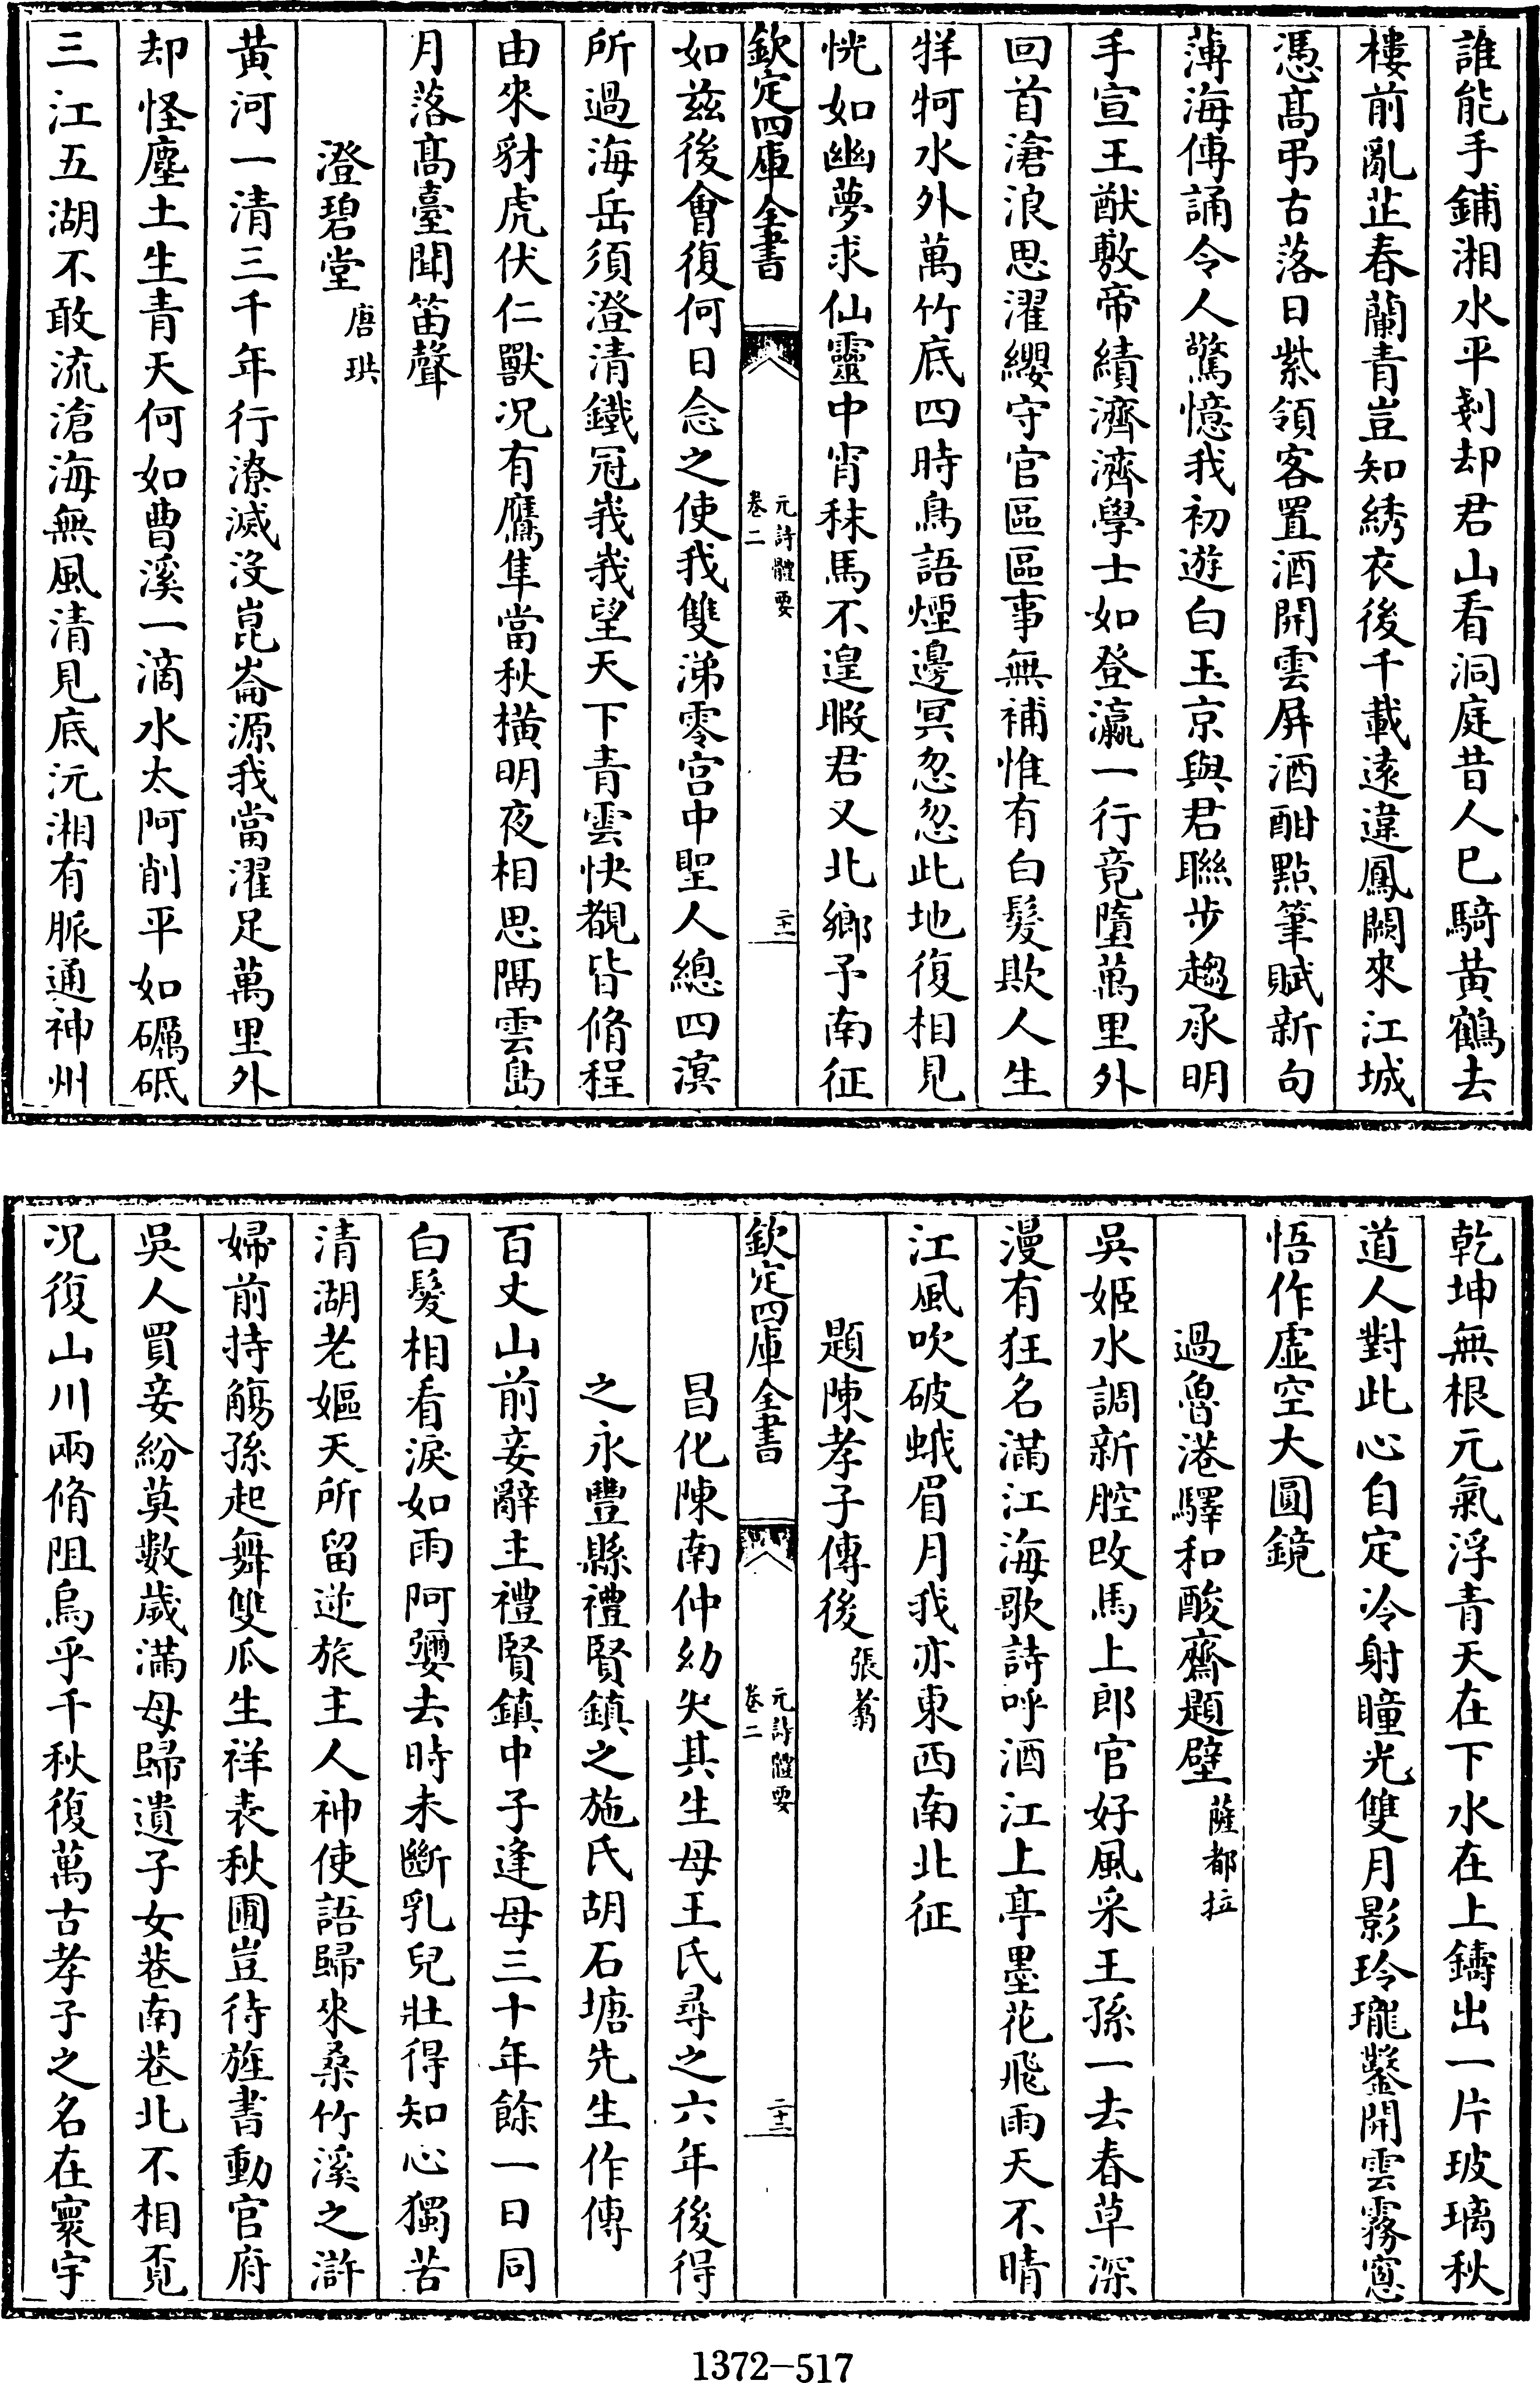 誰能手鋪湘水平剗却君山看洞庭昔人已騎黃鶴去
樓前亂芷春蘭青豈知綉衣後千載遠違鳳闕來江城
憑髙弔古落日紫領客置酒開雲屏酒酣點筆賦新句
薄海傳誦令人驚憶我初遊白玉京與君聯步趨承明
手宣王猷敷帝績濟濟學士如登瀛一行竟墮萬里外
回首滄浪思濯纓守官區區事無補惟有白髮欺人生
牂牁水外萬竹底四時鳥語煙邊冥忽忽此地復相見
恍如幽夢求仙靈中宵秣馬不遑暇君又北鄉予南征
欽定四庫全書
元詩體要
卷二
二十一
如兹後會復何日念之使我雙涕零宫中聖人總四溟
所過海岳須澄清鐵冠峩峩望天下青雲快覩皆脩程
由來豺虎伏仁獸况有鷹隼當秋橫明夜相思隔雲島
月落髙臺聞笛聲
澄碧堂 唐珙
黃河一清三千年行潦滅没崑崙源我當濯足萬里外
却怪塵土生青天何如曹溪一滴水太阿削平如礪砥
三江五湖不敢流滄海無風清見底沅湘有脈通神州
乾坤無根元氣浮青天在下水在上鑄出一片玻璃秋
道人對此心自定冷射瞳光雙月影玲瓏鑿開雲霧窓
悟作虛空大圓鏡
過魯港驛和酸齋題壁 薩都拉
吳姬水調新腔改馬上郎官好風采王孫一去春草深
漫有狂名滿江海歌詩呼酒江上亭墨花飛雨天不晴
江風吹破蛾眉月我亦東西南北征
題陳孝子傳後 張翥
欽定四庫全書
元詩體要
卷二
二十二
昌化陳南仲幼失其生母王氏尋之六年後得
之永豐縣禮賢鎮之施氏胡石塘先生作傳
百丈山前妾辭主禮賢鎮中子逢母三十年餘一日同
白髮相看淚如雨阿㜷去時未斷乳兒壯得知心獨苦
清湖老嫗天所留逆旅主人神使語歸來桑竹溪之滸
婦前持觴孫起舞雙瓜生祥表秋圃豈待旌書動官府
吳人買妾紛莫數歲滿母歸遺子女巷南巷北不相覔
况復山川兩脩阻烏乎千秋復萬古孝子之名在寰宇
1372-517